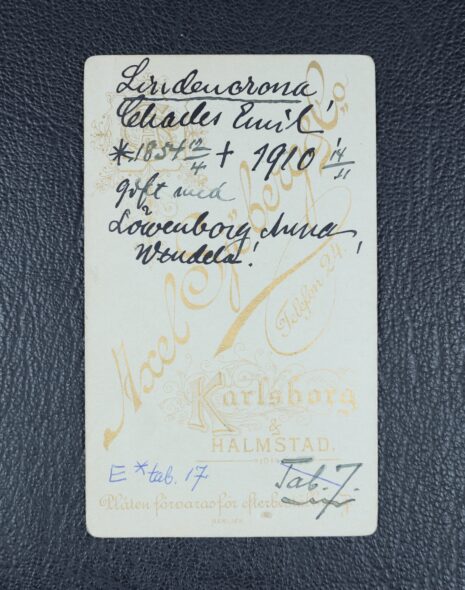 Lindencrona
Charles Emil
*1854 12/4 + 1910 14/11
gift med
Löwenborg Anna
Wendela!
Axel Sjöberg & Co
Telefon 24.
Karlsborg
&
HALMSTAD.
E * tab. 17
Tab. 7.
Plåten förvaras för efterbeställning